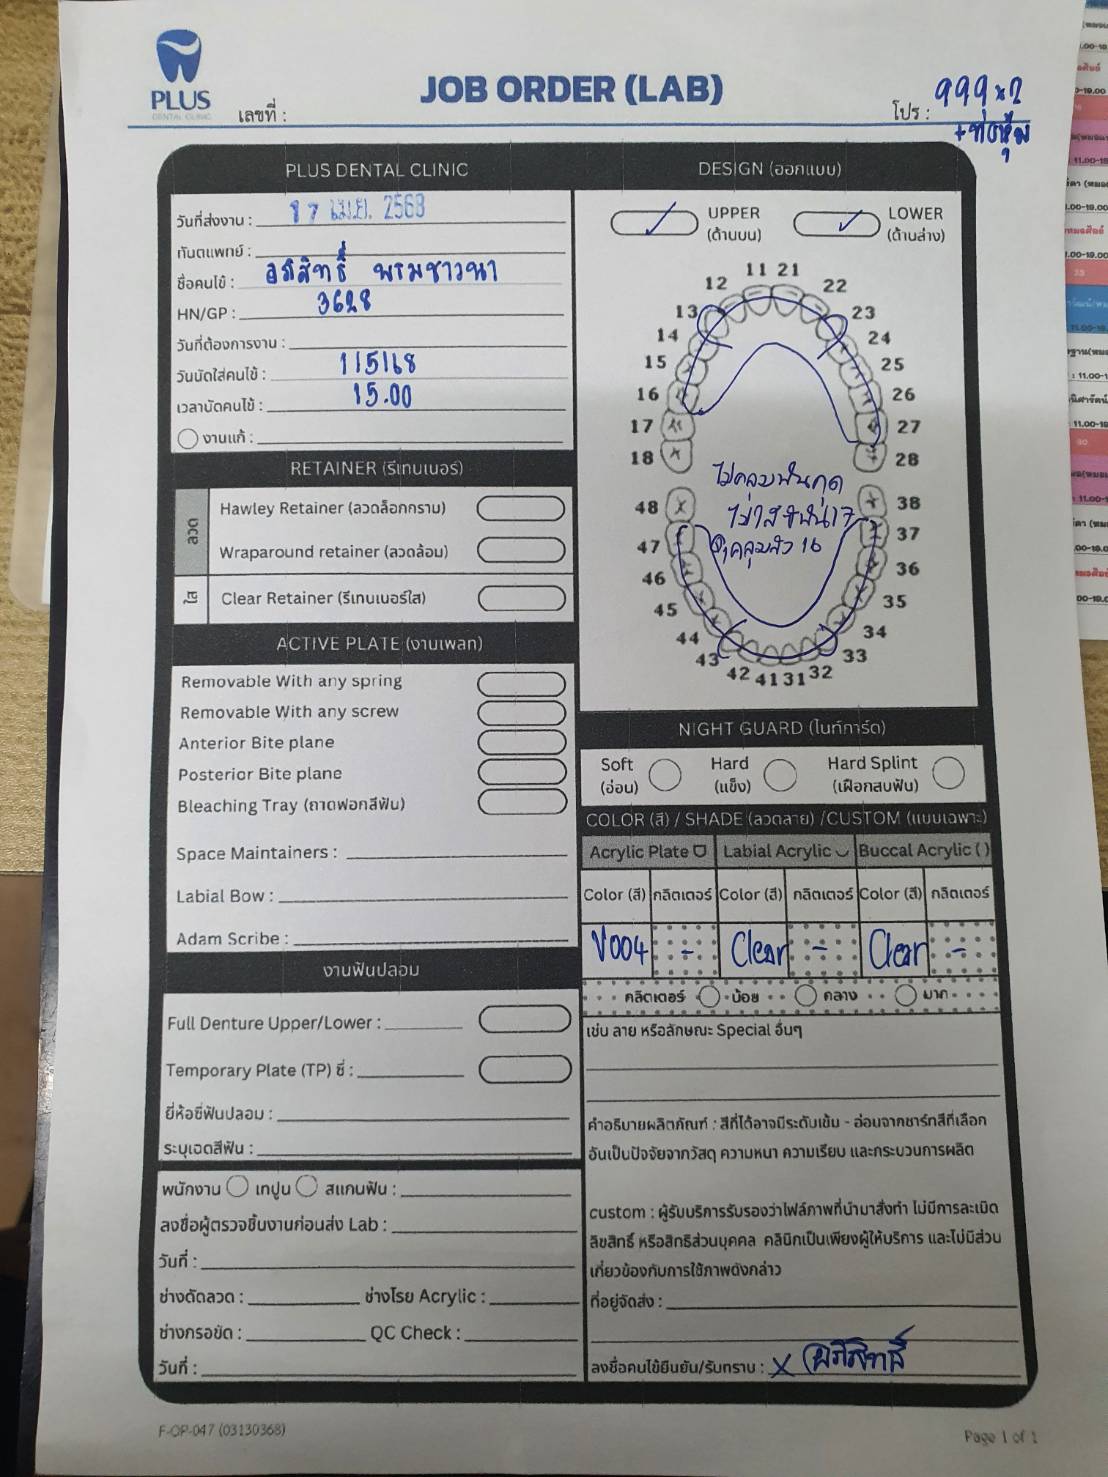 PLUS
DENTAL CLINIC
เลขที่ :
JOB ORDER (LAB)
โปร : 999 x 2
+ ท่อหุ้ม
PLUS DENTAL CLINIC
วันที่ส่งงาน : 17 เม.ย. 2568
ทันตแพทย์ :
ชื่อคนไข้ : อภิสิทธิ์ พรมชาวนา
HN/GP : 3628
วันที่ต้องการงาน :
วันนัดใส่คนไข้ : 1/5/68
เวลานัดคนไข้ : 15.00
งานแก้ :
RETAINER (รีเทนเนอร์)
ลวด
Hawley Retainer (ลวดล็อกกราม)
Wraparound retainer (ลวดล้อม)
ใส
Clear Retainer (รีเทนเนอร์ใส)
ACTIVE PLATE (งานเพลท)
Removable With any spring
Removable With any screw
Anterior Bite plane
Posterior Bite plane
Bleaching Tray (ถาดฟอกสีฟัน)
Space Maintainers :
Labial Bow :
Adam Scribe :
งานฟันปลอม
Full Denture Upper/Lower :
Temporary Plate (TP) ซี่ :
ยี่ห้อซี่ฟันปลอม :
ระบุเฉดสีฟัน :
พนักงาน เทปูน สแกนฟัน :
ลงชื่อผู้ตรวจชิ้นงานก่อนส่ง Lab :
วันที่ :
ช่างดัดลวด : ช่างโรย Acrylic :
ช่างกรอขัด : QC Check :
วันที่ :
DESIGN (ออกแบบ)
UPPER
(ด้านบน)
LOWER
(ด้านล่าง)
11 21
12 22
13 23
14 24
15 25
16 26
17 27
18 28
ไม่คลุมฟันคุด
ไม่ใส่ซี่ฟัน 17
คลุมถึง 16
48 38
47 37
46 36
45 35
44 34
43 33
42 41 31 32
NIGHT GUARD (ไนท์การ์ด)
Soft
(อ่อน)
Hard
(แข็ง)
Hard Splint
(เฝือกสบฟัน)
COLOR (สี) / SHADE (ลวดลาย) /CUSTOM (แบบเฉพาะ)
Acrylic Plate Labial Acrylic Buccal Acrylic ( )
Color (สี) กลิตเตอร์ Color (สี) กลิตเตอร์ Color (สี) กลิตเตอร์
V004 - Clear - Clear -
กลิตเตอร์ น้อย กลาง มาก
เช่น ลาย หรือลักษณะ Special อื่นๆ
คำอธิบายผลิตภัณฑ์ : สีที่ได้อาจมีระดับเข้ม - อ่อนจากชาร์ทสีที่เลือก
อันเป็นปัจจัยจากวัสดุ ความหนา ความเรียบ และกระบวนการผลิต
custom : ผู้รับบริการรับรองว่าไฟล์ภาพที่นำมาสั่งทำ ไม่มีการละเมิด
ลิขสิทธิ์ หรือสิทธิส่วนบุคคล คลินิกเป็นเพียงผู้ให้บริการ และไม่มีส่วน
เกี่ยวข้องกับการใช้ภาพดังกล่าว
ที่อยู่จัดส่ง :
ลงชื่อคนไข้ยืนยัน/รับทราบ : x อภิสิทธิ์
F-OP-047 (03130368)
Page 1 of 1